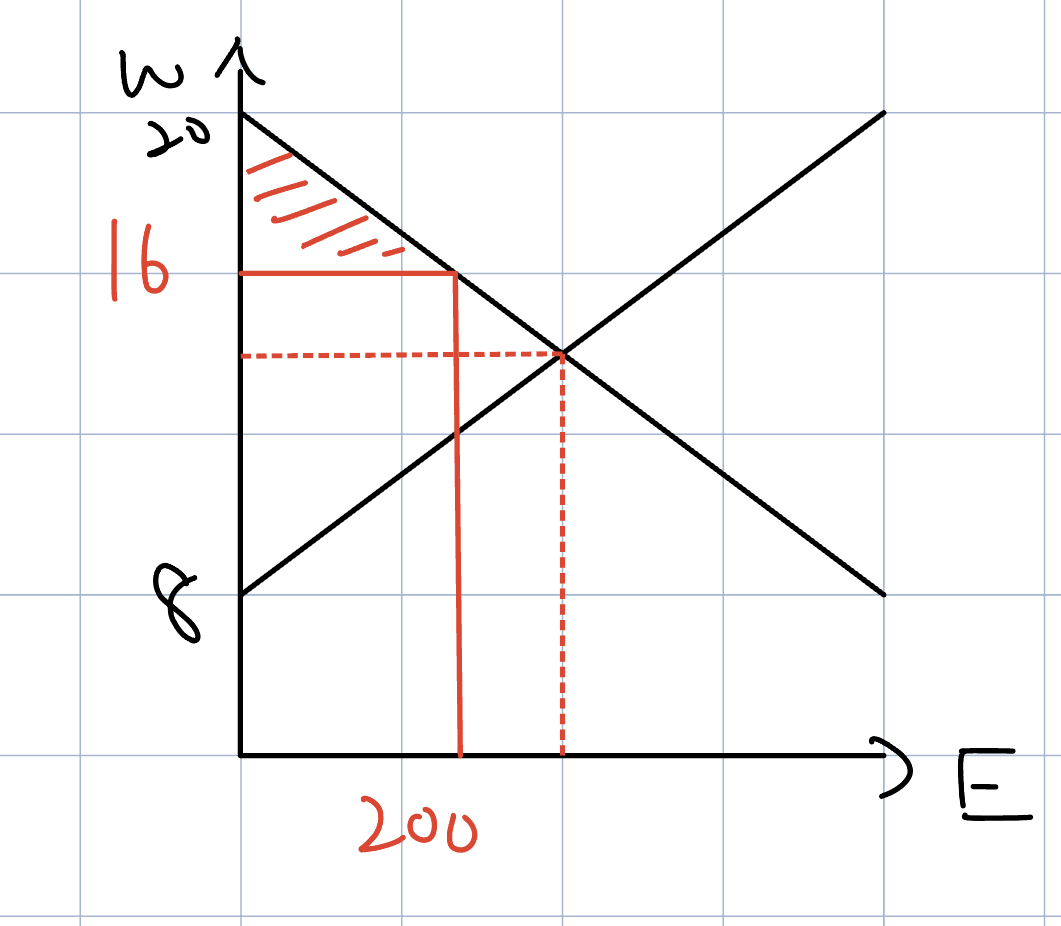 W
20
16
8
E
200